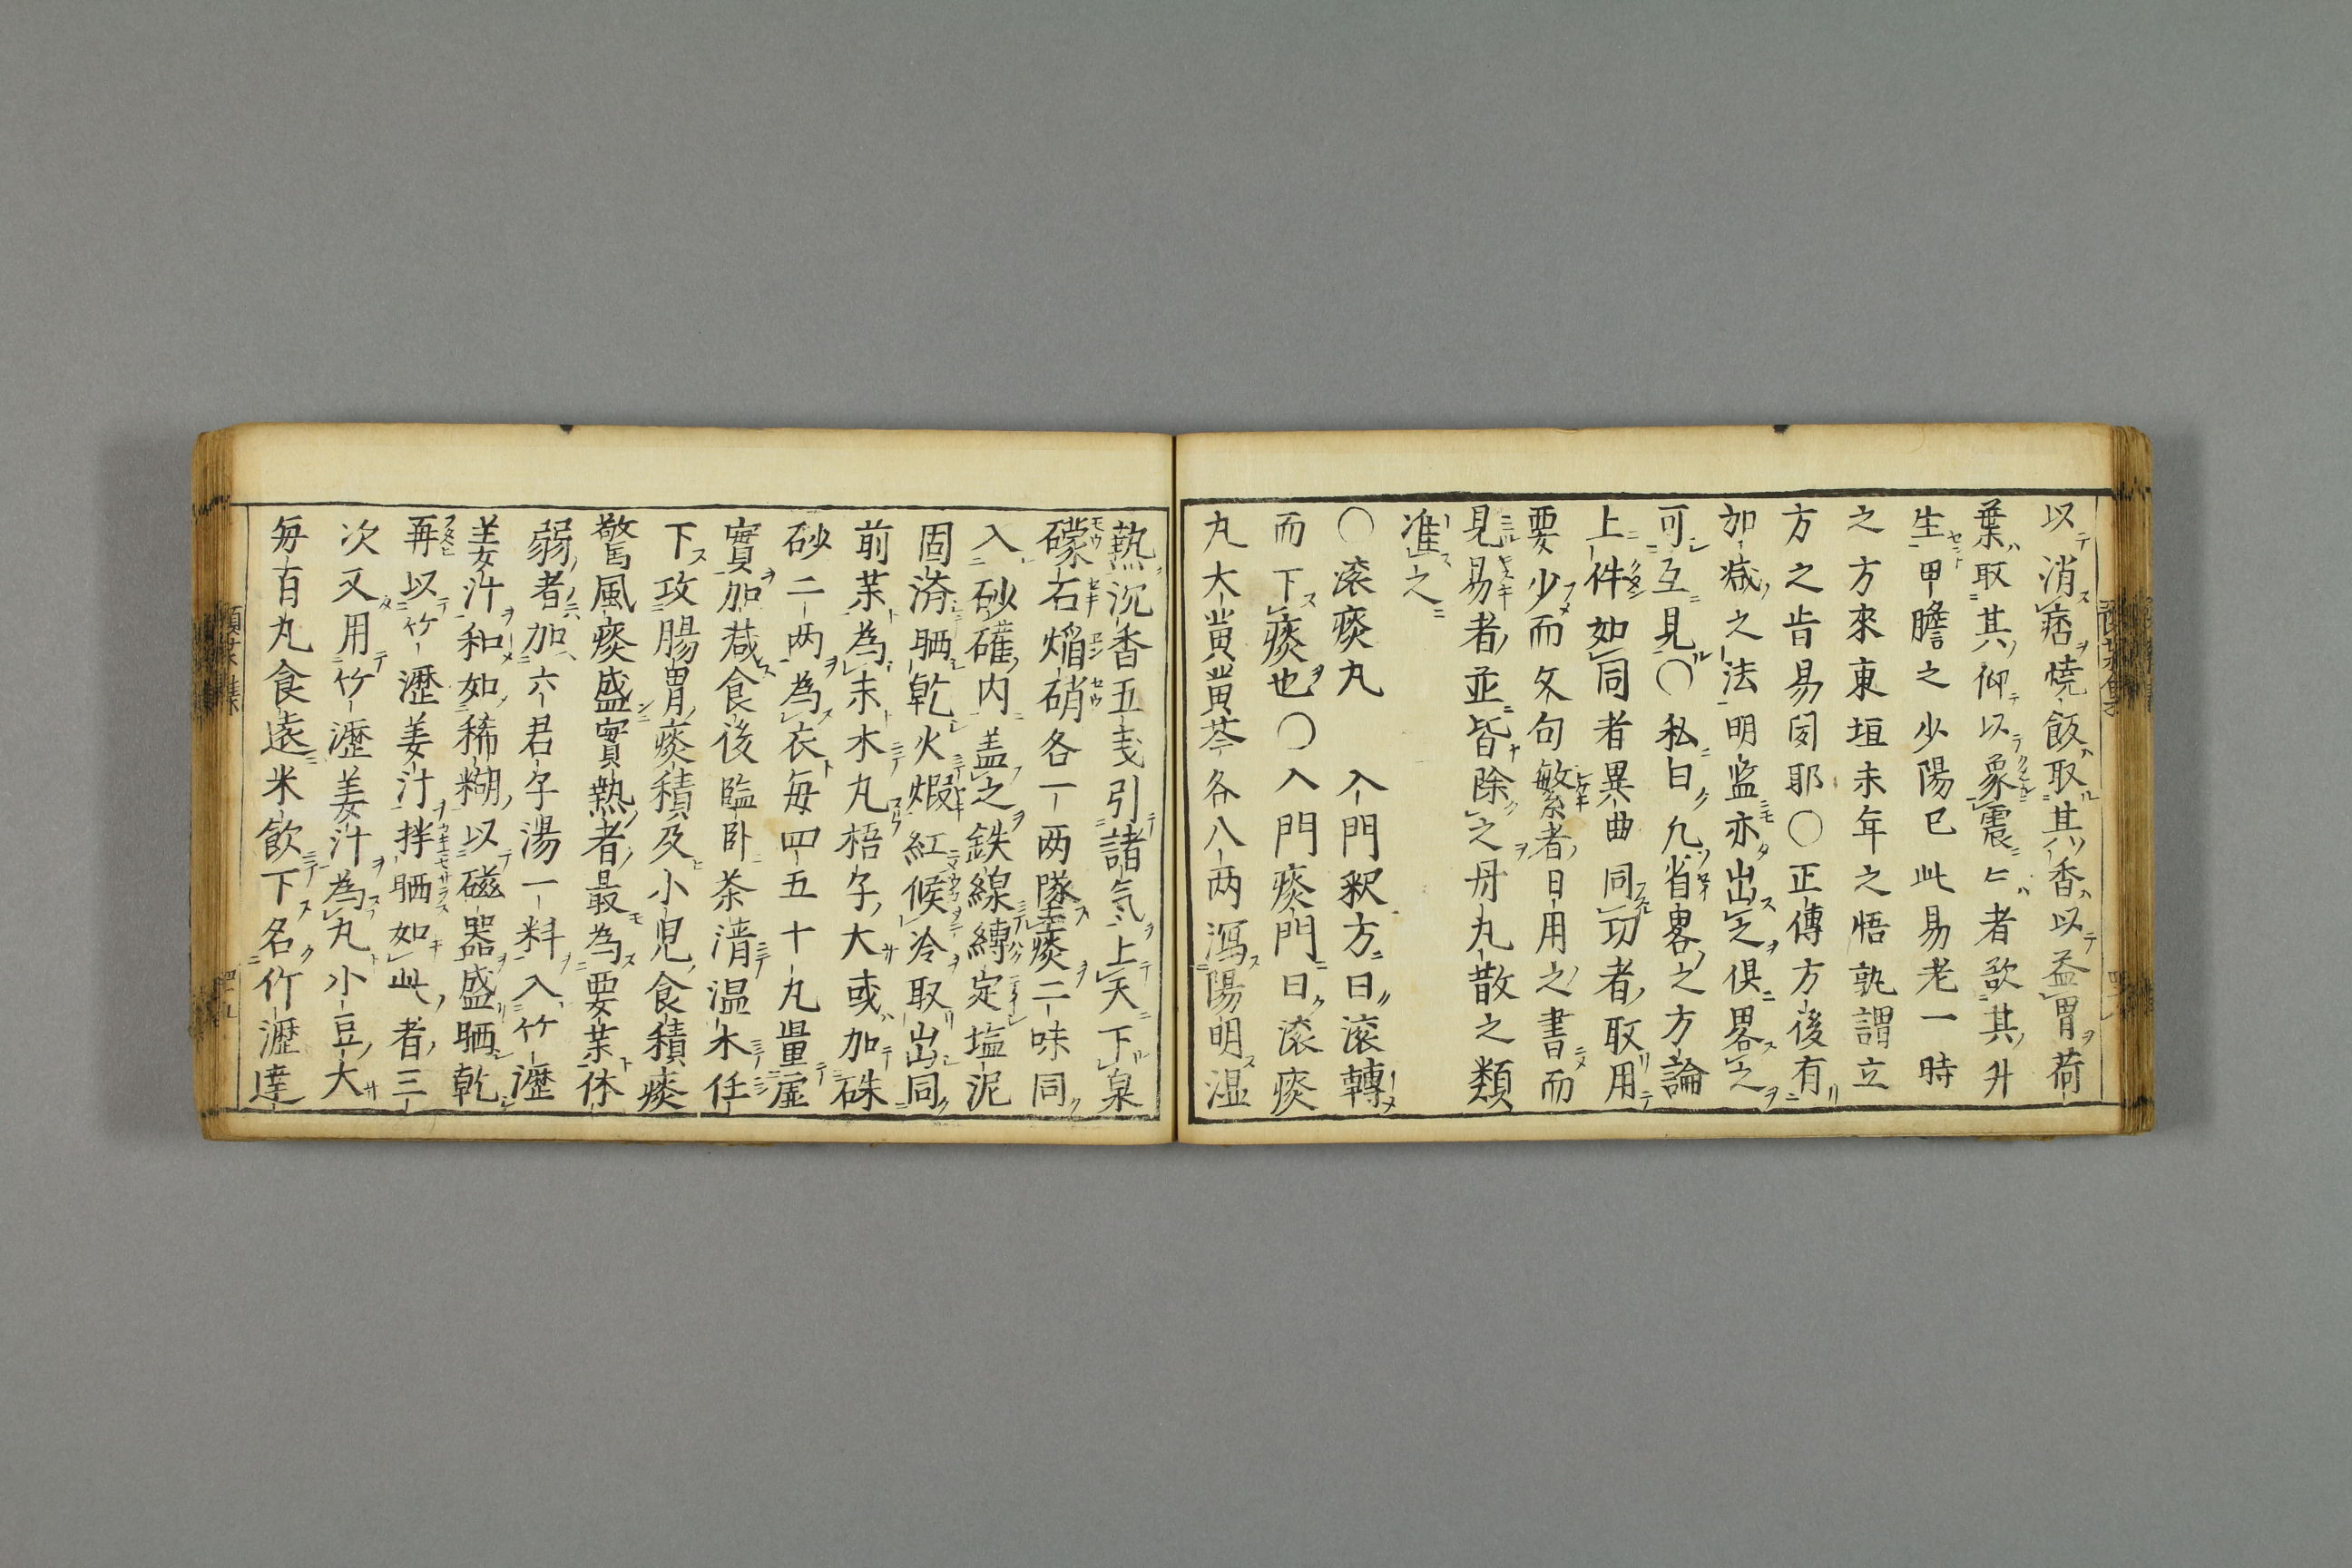 以消痞焼飯取其香以益胃荷
葉取其仰以象震㠯者歆其升
生甲膽之少陽巳此易老一時
之方來東垣未年之悟孰謂立
方之㫖易図耶〇正傳方後有
加减之法明监亦出之俱畧之
可互見〇私曰凢省畧之方論
上件如同者異曲同功者取用
要少而文句繁者日用之書而
見易者並皆除之丹丸散之類
准之
〇滚痰丸 入門釈方曰滚轉
而下痰也〇入門痰門曰滚痰
丸大黄黄芩各八两瀉陽明湿
熱沉香五戋引諸気上天下泉
礞石焔硝各一两墜痰二味同
入砂礶内盖之鉄線縛定塩泥
固済晒乾火煅紅候冷取出同
前薬為末水丸梧子大或加硃
砂二两為衣毎四五十丸量虚
實加减食後臨卧茶清温水任
下攻腸胃痰積及小児食積痰
驚風痰盛實熱者最為要薬体
弱者加六君子湯一料入竹瀝
姜汁和如稀糊以磁器盛晒乾
再以竹瀝姜汁拌晒如此者三
次又用竹瀝姜汁為丸小豆大
毎百丸食遠米飲下名竹瀝達